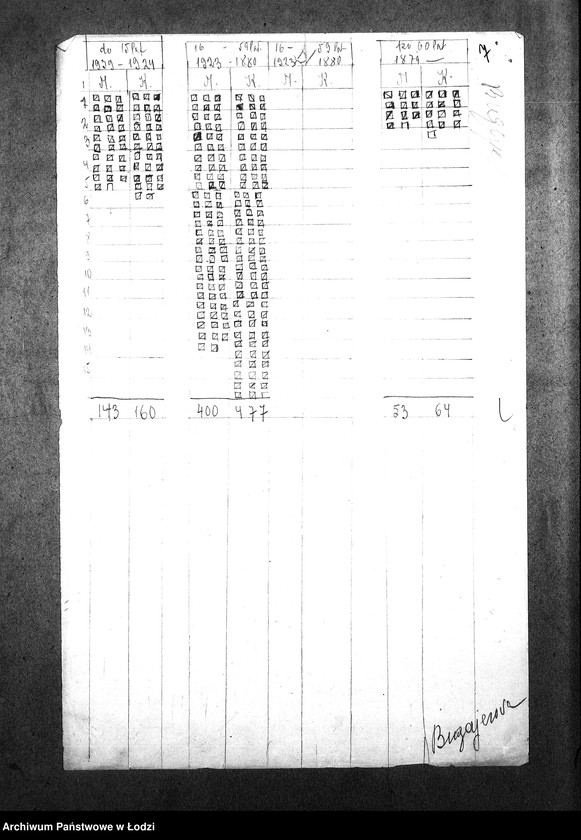 do 15 lat 16 - 59 lat. 16 - 59 lat po 60 lat 7.
1939 - 1924 1923 - 1880 1923 1880 1879 —
M. K. M. K. M. K. M K.
1
2
3
4
5
6
7
8
9
10
11
12
13
14
143 160 400 477 53 64
Archiwum Państwowe w Łodzi